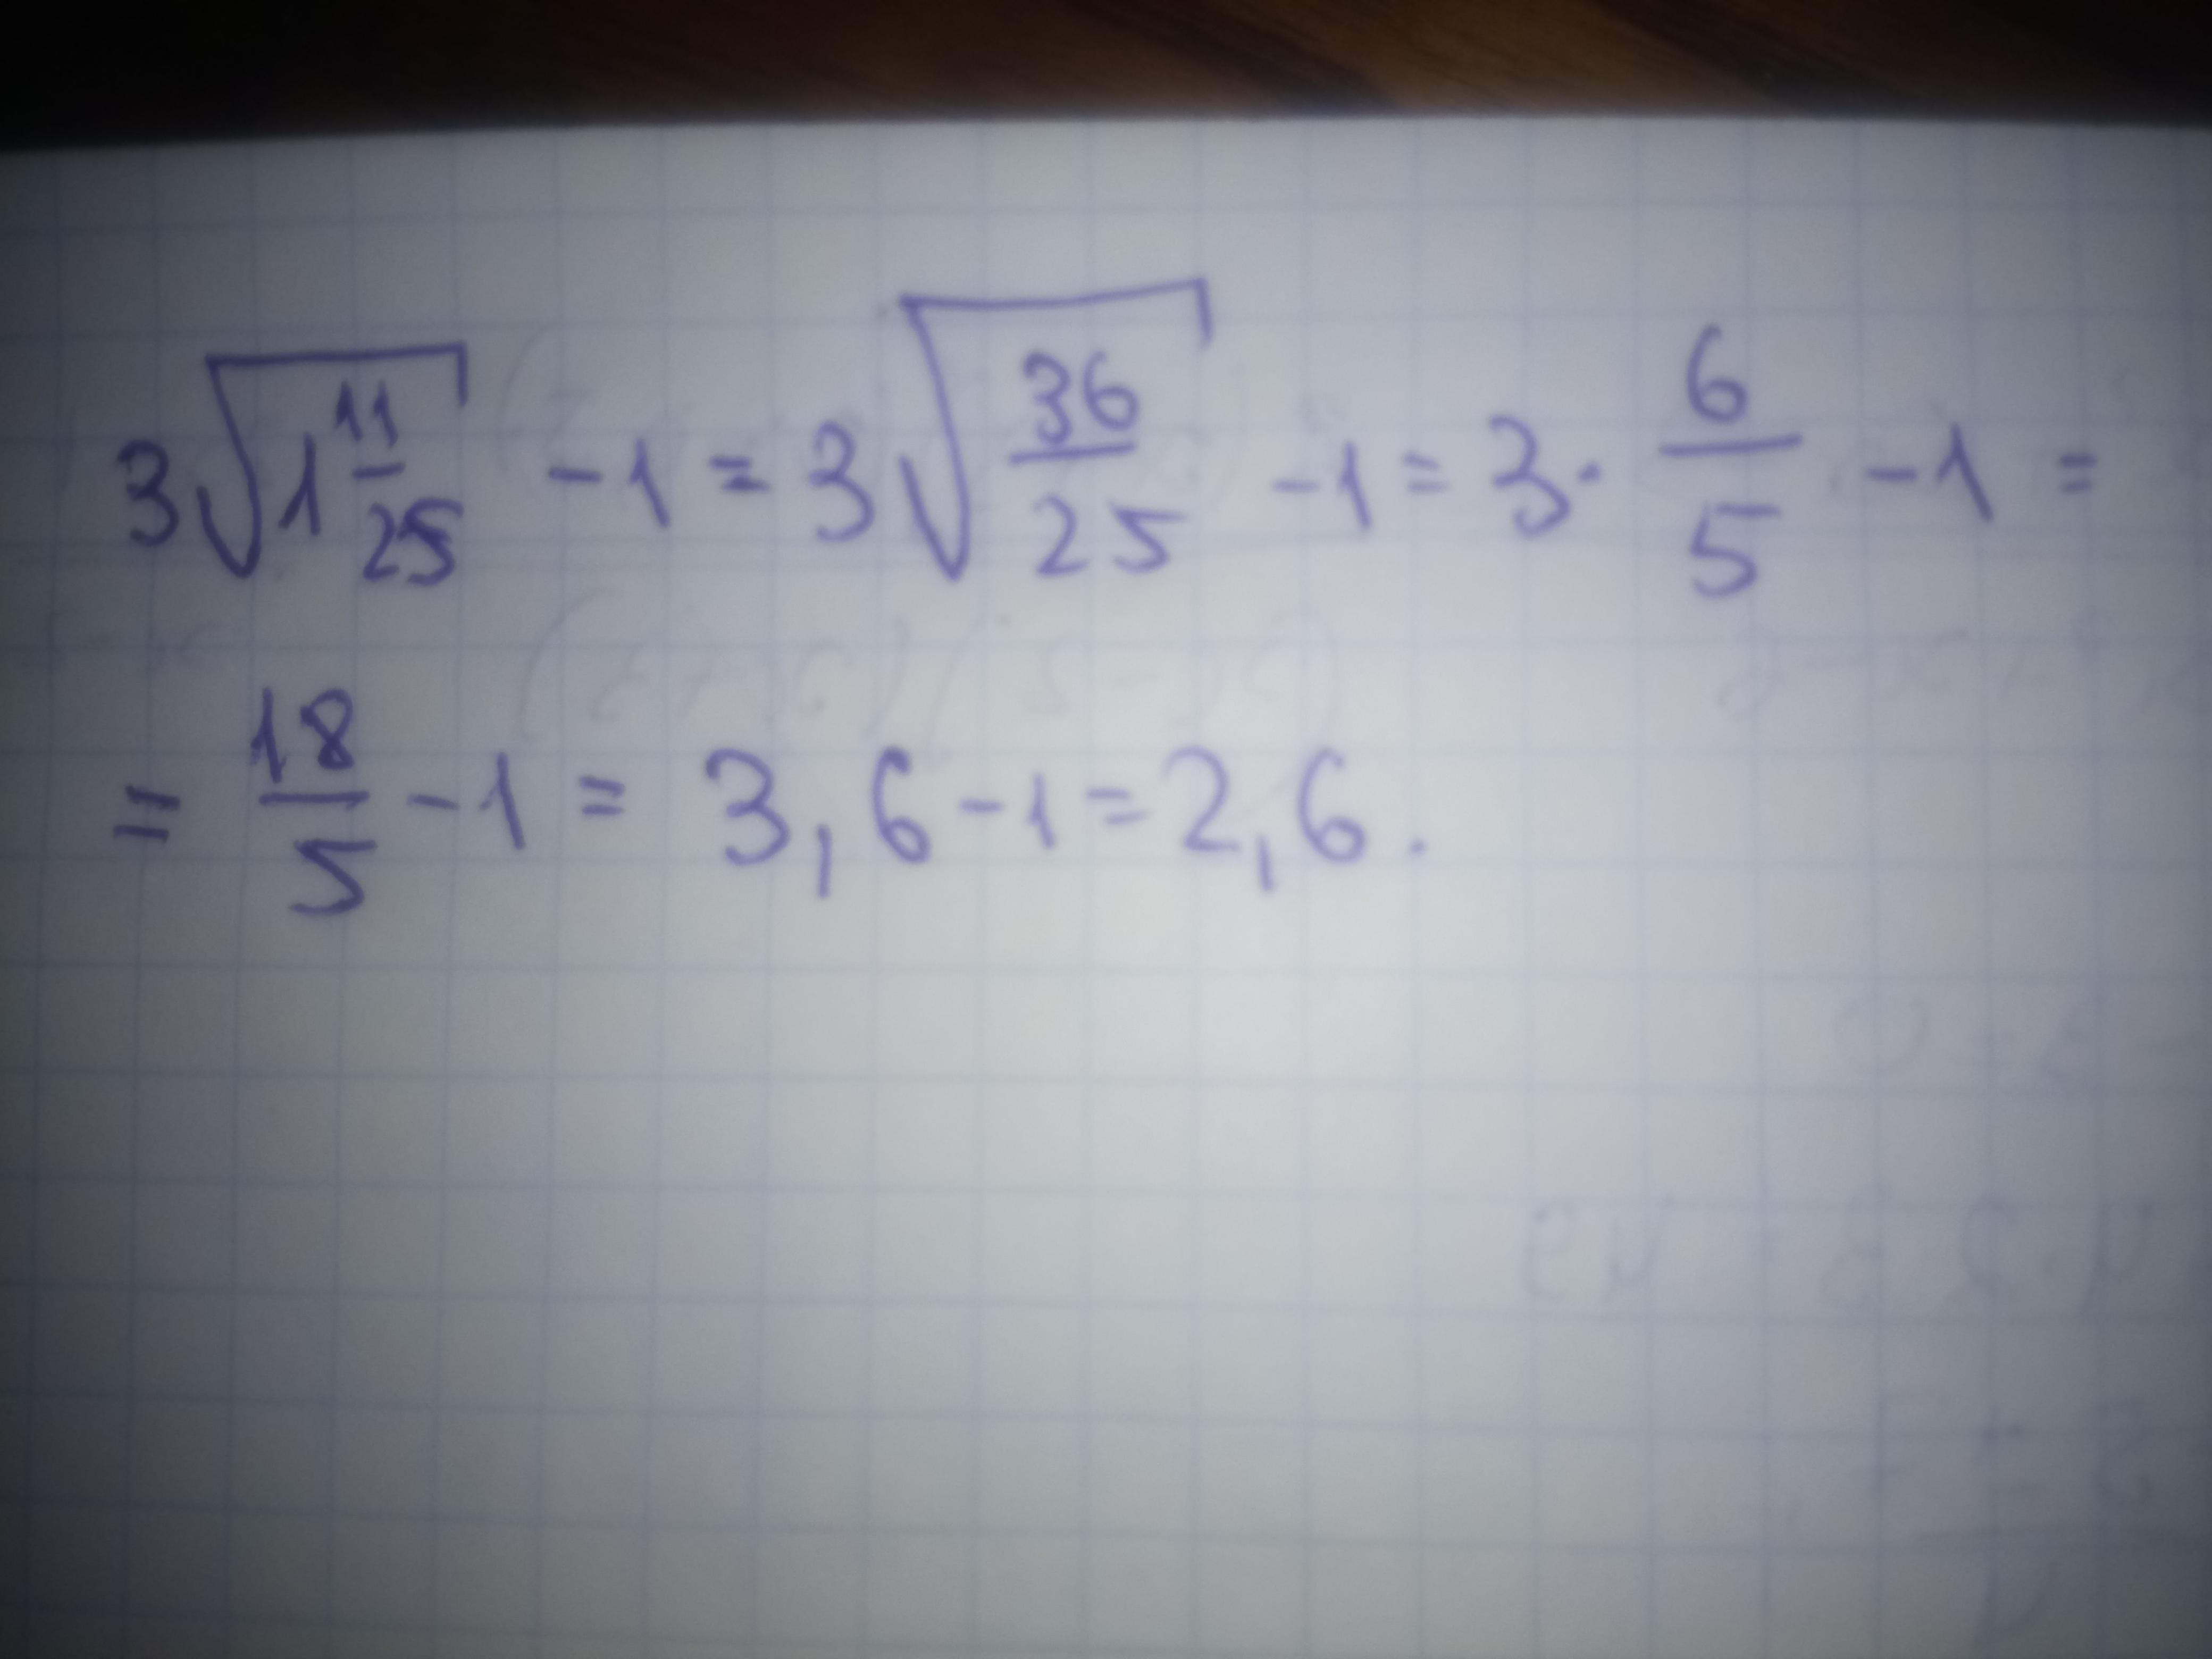 3√(1 11/25) - 1 = 3√(36/25) - 1 = 3 · 6/5 - 1 =
= 18/5 - 1 = 3,6 - 1 = 2,6.